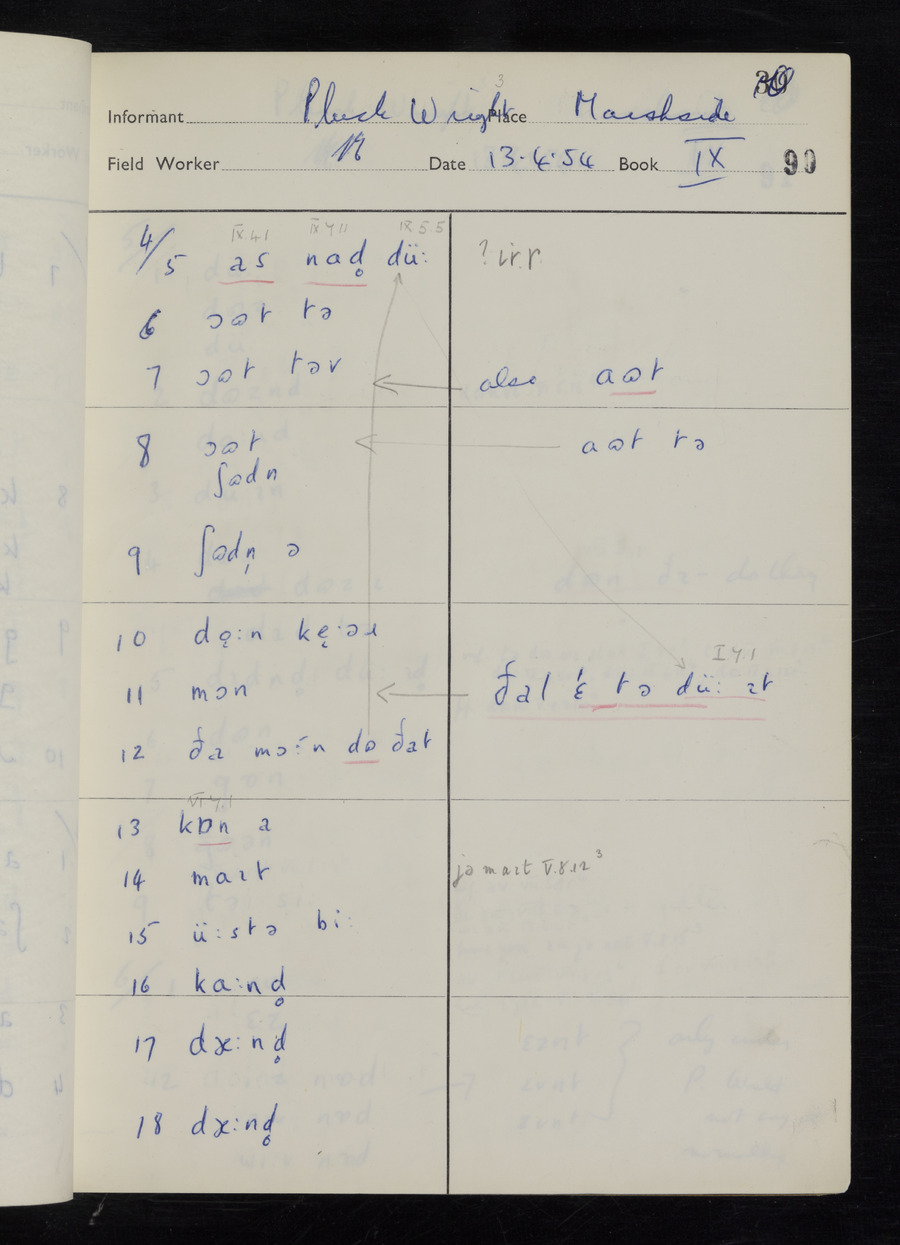 Informant Pluck Wright Place Marshside
3
Field Worker Date 13.4.54 Book IX 90
IX.4.1 IX 4 11 IX 5 5
4/5 as nad̥ dü: ? irr.
6 ɔɷt tə
7 ɔɷt təv also aɷt
8 ɔɷt aɷt tə
ʃɷdn
9 ʃɷdn̩ ə
10 dę:n kę:əɹ
I.4.1
11 mɔn ðat ɛ tə dü: ɪt
12 ðə mɔ:n dɷ ðat
VI.4.1
13 kɒn a
14 maɪt jə maɪt V.8.12 3
15 ü:stə bi:
16 ka:nd̥
17 dæ:nd̥
18 dæ:nd̥